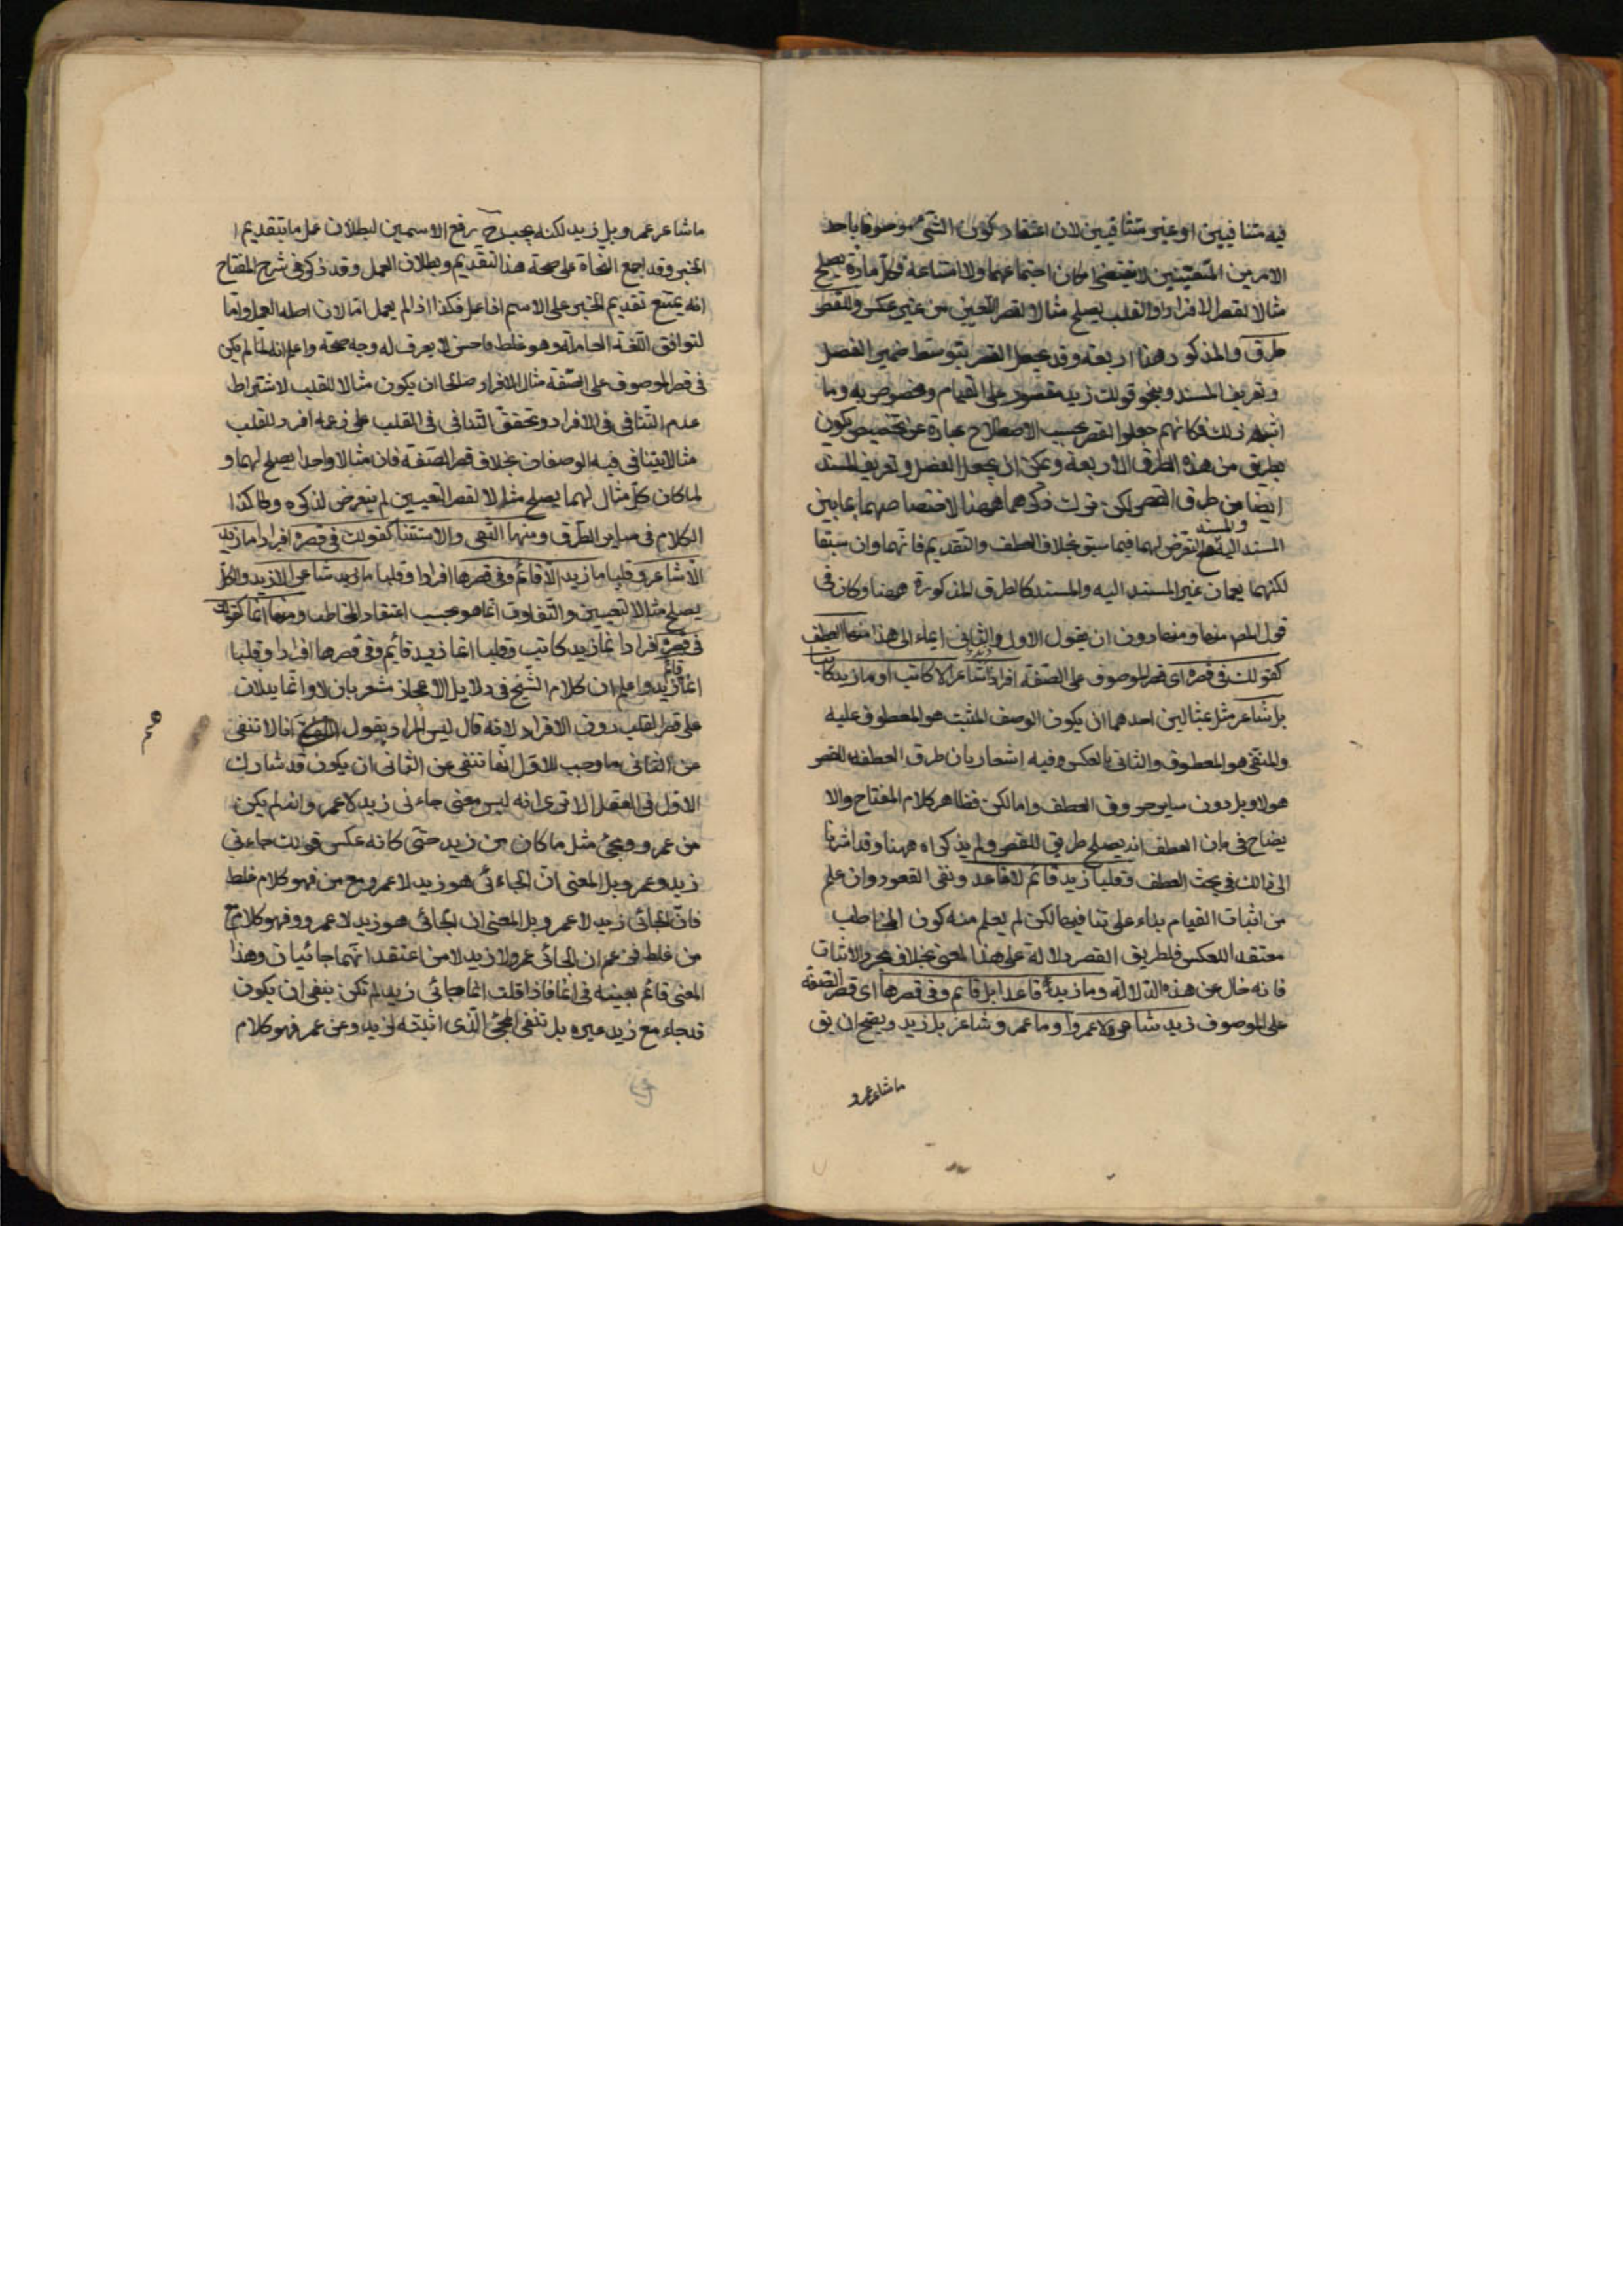 فيه متنافيين او غير متنافيين لان اعتقاد كون الشئ موصوفا باحد
الامرين المتعينين لا يقتضى امكان اجتماعهما ولا امتناعه وكل مادة يصلح
مثالا لقصر الافراد او القلب يصلح مثالا لقصر التعين من غير عكس وللقصر
طرق والمذكور ههنا اربعة وقد يحصل القصر بتوسط ضمير الفصل
وتعريف المسند وبنحو قولك زيد مقصور على القيام ومخصوص به وما
اشبه ذلك فكانهم جعلوا القصر بحسب الاصطلاح عبارة عن تخصيص يكون
بطريق من هذه الطرق الاربعة ويمكن ان يجعل الفصل وتعريف المسند
ايضا من طرق القصر لكن ترك ذكرهما ههنا لاختصاصهما بما بين
المسند اليه والمسند مع التعرض لهما فيما سبق بخلاف العطف والتقديم فانهما وان سبقا
لكنهما يعمان غير المسند اليه والمسند كالطرق المذكورة ههنا وكان فى
قول المص منها ومنها دون ان يقول الاول والثانى ايماء الى هذا منها العطف
كقولك فى قصره اى قصر الموصوف على الصفة افرادا زيد شاعر لا كاتب او ما زيد كاتبا
بل شاعر مثل بمثالين احدهما ان يكون الوصف المثبت هو المعطوف عليه
والمنفى هو المعطوف والثانى بالعكس وفيه اشعار بان طرق العطف للقصر
هو لا وبل دون ساير حروف العطف واما لكن فظاهر كلام المفتاح والا
يضاح فى باب العطف انه يصلح طريق للقصر ولم يذكراه ههنا وقد اشرنا
الى ذلك فى بحث العطف وقلبا زيد قائم لا قاعد ونفى القعود وان علم
من اثبات القيام بناء على تنافيهما لكن لم يعلم منه كون المخاطب
معتقدا للعكس فلطريق القصر دلالة على هذا المعنى بخلاف مجرد الاثبات
فانه خال عن هذه الدلالة وما زيد قاعدا بل قايم وفى قصرها اى قصر الصفة
على الموصوف زيد شاعر لا عمرو او ما عمرو شاعرا بل زيد ويصح ان يق
ما شاعر عمرو
ما شاعر عمرو بل زيد لكنه يجب ح رفع الاسمين لبطلان عمل ما بتقديم ا
الخبر وقد اجمع النحاة على صحة هذا التقديم وبطلان العمل وقد ذكر فى شرح المفتاح
انه يمتنع تقديم الخبر على الاسم اذا عمل فكذا اذا لم يعمل اما لان اصله العمل واما
لتوافق اللغة العاملة وهو غلط فاحش لا يعرف له وجه صحة واعلم انه لما لم يكن
فى قصر الموصوف على الصفة مثال الافراد صالحا ان يكون مثالا للقلب لاشتراط
عدم التنافى فى الافراد وتحقق التنافى فى القلب على زعمه افرد للقلب
مثالا يتنافى فيه الوصفان بخلاف قصر الصفة فان مثالا واحدا يصلح لهما و
لما كان كل مثال لهما يصلح مثالا لقصر التعيين لم يتعرض لذكره وهكذا
الكلام فى ساير الطرق ومنها النفى والاستثناء كقولك فى قصره افرادا ما زيد
الا شاعر وقلبا ما زيد الا قائم وفى قصرها افرادا وقلبا ما زيد شاعر الا زيد والكل
يصلح مثالا للتعيين والتفاوت انما هو بحسب اعتقاد المخاطب ومنها انما كقولك
فى قصره افرادا انما زيد كاتب وقلبا انما زيد قائم وفى قصرها افرادا وقلبا
انما قائم زيد واعلم ان كلام الشيخ فى دلايل الاعجاز مشعر بان لا وانما يدلان
على قصر القلب دون الافراد لانه قال ليس المراد بقول انا لا تنفى
عن الثانى ما وجب للاول انها تنفى عن الثانى ان يكون قد شارك
الاول فى الفعل الا ترى انه ليس معنى جاءنى زيد لا عمرو انه لم يكن
من عمرو مجئ مثل ما كان من زيد حتى كانه عكس قولك جاءنى
زيد وعمرو بل المعنى ان الجائى هو زيد لا عمرو مع من فهو كلام غلط
فان الجائى زيد لا عمرو بل المعنى ان الجائى هو زيد لا عمرو وفهو كلام مع
من غلط فزعم ان الجائى عمرو لا زيد لا من اعتقد انهما جائيان وهذا
المعنى قائم بعينه فى انما فاذا قلت انما جائى زيد لم تكن ينفى ان يكون
قد جاء مع زيد غيره بل تنفى المجئ الذى اثبته لزيد وعن عمرو فهو كلام